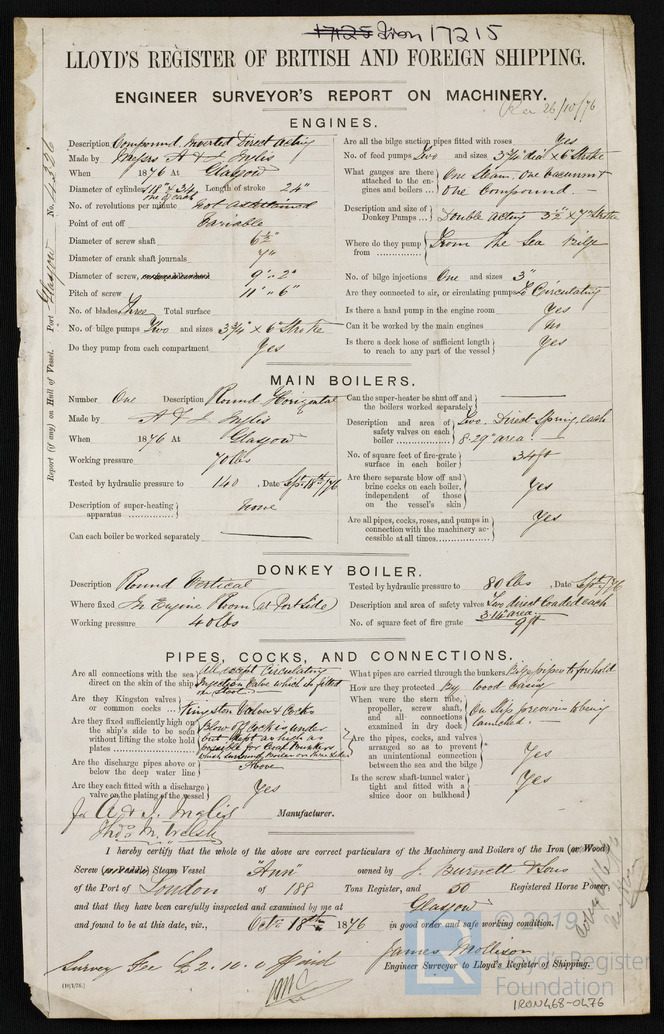 17215 Iron 17215
LLOYD'S REGISTER OF BRITISH AND FOREIGN SHIPPING.
ENGINEER SURVEYOR'S REPORT ON MACHINERY.
Rec 26/10/76
Report (if any) on Hull of Vessel. Port Glasgow No. 4326
ENGINES.
Description Compound Inverted Direct Acting
Made by Messrs A & J Inglis
When 1876 At Glasgow
Diameter of cylinders 18" & 34" Length of stroke 24"
one of each
No. of revolutions per minute not ascertained
Point of cut off Variable
Diameter of screw shaft 6½"
Diameter of crank shaft journals 7"
Diameter of screw, 9'" 2"
Pitch of screw 11'" 6"
No. of blades Three Total surface
No. of bilge pumps Two and sizes 3¾" x 6" Stroke
Do they pump from each compartment Yes
Are all the bilge suction pipes fitted with roses Yes
No. of feed pumps Two and sizes 3¾" dia x 6" Stroke
What gauges are there attached to the engines and boilers ... One Steam. One Vacuum & One Compound. —
Description and size of Donkey Pumps ... Double Acting 3½" x 7" Stroke
Where do they pump from ............. From the Sea Bilge
No. of bilge injections One and sizes 3"
Are they connected to air, or circulating pumps To Circulating
Is there a hand pump in the engine room Yes
Can it be worked by the main engines No
Is there a deck hose of sufficient length to reach to any part of the vessel Yes
MAIN BOILERS.
Number One Description Round Horizontal
Made by A & J Inglis
When 1876 At Glasgow
Working pressure 70 lbs
Tested by hydraulic pressure to 140, Date Sept 18th/76
Description of super-heating apparatus .................. None
Can each boiler be worked separately ———
Can the super-heater be shut off and the boilers worked separately ———
Description and area of safety valves on each boiler ............... Two. Direct Spring, each 8.29" area. —
No. of square feet of fire-grate surface in each boiler 34 ft
Are there separate blow off and brine cocks on each boiler, independent of those on the vessel's skin Yes
Are all pipes, cocks, roses, and pumps in connection with the machinery accessible at all times ........... Yes
DONKEY BOILER.
Description Round Vertical
Where fixed In Engine Room (at Port Side)
Working pressure 40 lbs
Tested by hydraulic pressure to 80 lbs, Date Sept/76
Description and area of safety valves Two direct loaded each 3.14" area.
No. of square feet of fire grate 9 ft
PIPES, COCKS, AND CONNECTIONS.
Are all connections with the sea direct on the skin of the ship All except Circulating Injection Valve which is fitted on Stool
Are they Kingston valves or common cocks ... Kingston Valves & Cocks
Are they fixed sufficiently high on the ship's side to be seen without lifting the stoke hold plates ................ Blow off Cock is under but kept as high as possible for Coal Bunkers
Are the discharge pipes above or below the deep water line Above
Are they each fitted with a discharge valve on the plating of the vessel Yes
What pipes are carried through the bunkers Bilge pipes to forehold
How are they protected By wood casing
When were the stern tube, propeller, screw shaft, and all connections examined in dry dock On slip previous to being launched. —
Are the pipes, cocks, and valves arranged so as to prevent an unintentional connection between the sea and the bilge Yes
Is the screw shaft-tunnel water tight and fitted with a sluice door on bulkhead Yes
for A. & J. Inglis Manufacturer.
Thos M. Welsh
I hereby certify that the whole of the above are correct particulars of the Machinery and Boilers of the Iron (or Wood)
Screw (or Paddle) Steam Vessel "Ann" owned by J. Burnett & Sons
of the Port of London of 188 Tons Register, and 50 Registered Horse Power,
and that they have been carefully inspected and examined by me at Glasgow
and found to be at this date, viz., Octr 18th 1876 in good order and safe working condition.
James Mollison
Engineer Surveyor to Lloyd's Register of Shipping.
Survey Fee £2.10.0
(10/1/76.)
© 2019
Lloyd's Register
Foundation
IRON468-0476